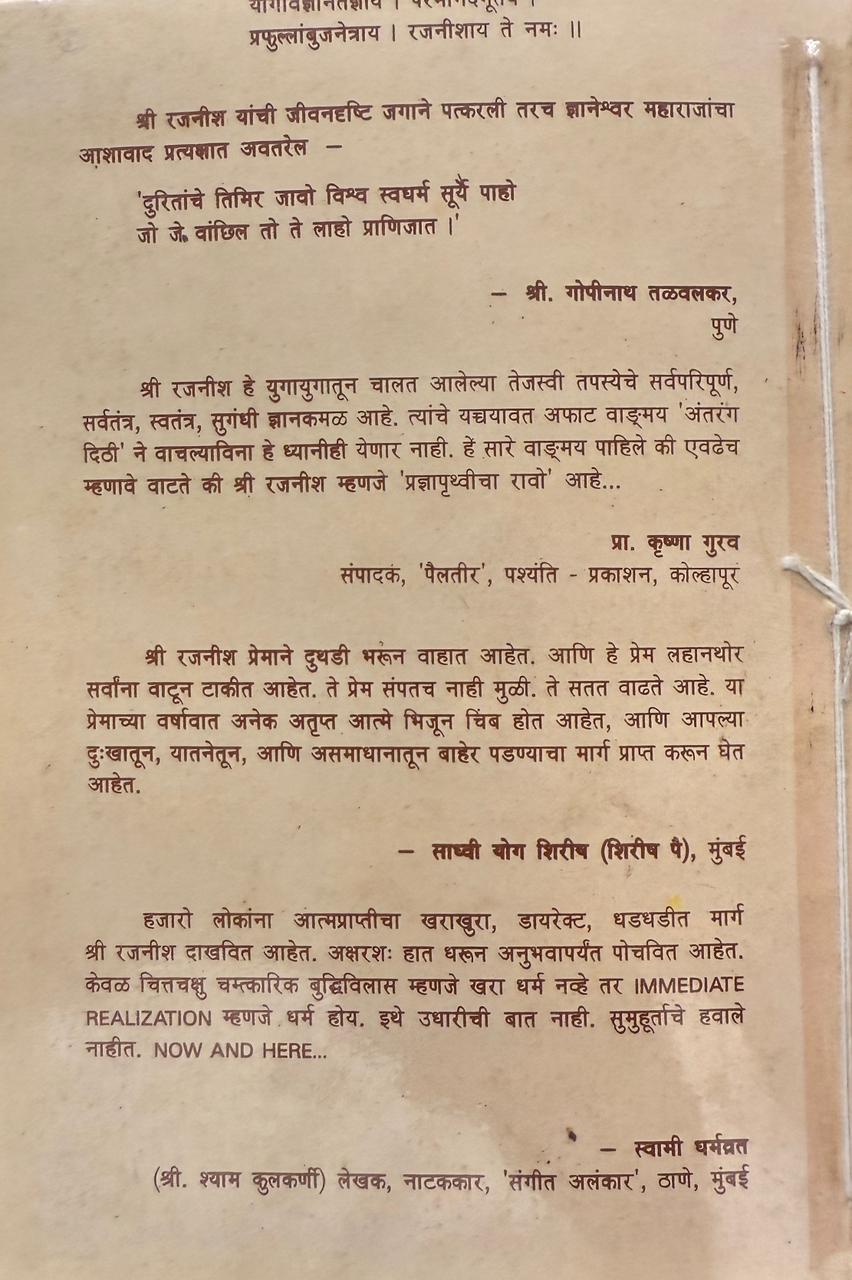 प्रफुल्लांबुजनेत्राय । रजनीशाय ते नमः ॥
श्री रजनीश यांची जीवनदृष्टि जगाने पत्करली तरच ज्ञानेश्वर महाराजांचा
आशावाद प्रत्यक्षात अवतरेल –
'दुरितांचे तिमिर जावो विश्व स्वधर्म सूर्यें पाहो
जो जे वांछिल तो ते लाहो प्राणिजात ।'
– श्री. गोपीनाथ तळवलकर,
पुणे
श्री रजनीश हे युगायुगातून चालत आलेल्या तेजस्वी तपस्येचे सर्वपरिपूर्ण,
सर्वतंत्र, स्वतंत्र, सुगंधी ज्ञानकमळ आहे. त्यांचे यच्चयावत अफाट वाङ्मय 'अंतरंग
दिठी' ने वाचल्याविना हे ध्यानीही येणार नाही. हें सारे वाङ्मय पाहिले की एवढेच
म्हणावे वाटते की श्री रजनीश म्हणजे 'प्रज्ञापृथ्वीचा रावो' आहे...
प्रा. कृष्णा गुरव
संपादक, 'पैलतीर', पश्यंति - प्रकाशन, कोल्हापूर
श्री रजनीश प्रेमाने दुथडी भरून वाहात आहेत. आणि हे प्रेम लहानथोर
सर्वांना वाटून टाकीत आहेत. ते प्रेम संपतच नाही मुळी. ते सतत वाढते आहे. या
प्रेमाच्या वर्षावात अनेक अतृप्त आत्मे भिजून चिंब होत आहेत, आणि आपल्या
दुःखातून, यातनेतून, आणि असमाधानातून बाहेर पडण्याचा मार्ग प्राप्त करून घेत
आहेत.
– साध्वी योग शिरीष (शिरीष पै), मुंबई
हजारो लोकांना आत्मप्राप्तीचा खराखुरा, डायरेक्ट, धडधडीत मार्ग
श्री रजनीश दाखवित आहेत. अक्षरशः हात धरून अनुभवापर्यंत पोचवित आहेत.
केवळ चित्तचक्षु चमत्कारिक बुद्धिविलास म्हणजे खरा धर्म नव्हे तर IMMEDIATE
REALIZATION म्हणजे धर्म होय. इथे उधारीची बात नाही. सुमुहूर्ताचे हवाले
नाहीत. NOW AND HERE...
– स्वामी धर्मव्रत
(श्री. श्याम कुलकर्णी) लेखक, नाटककार, 'संगीत अलंकार', ठाणे, मुंबई